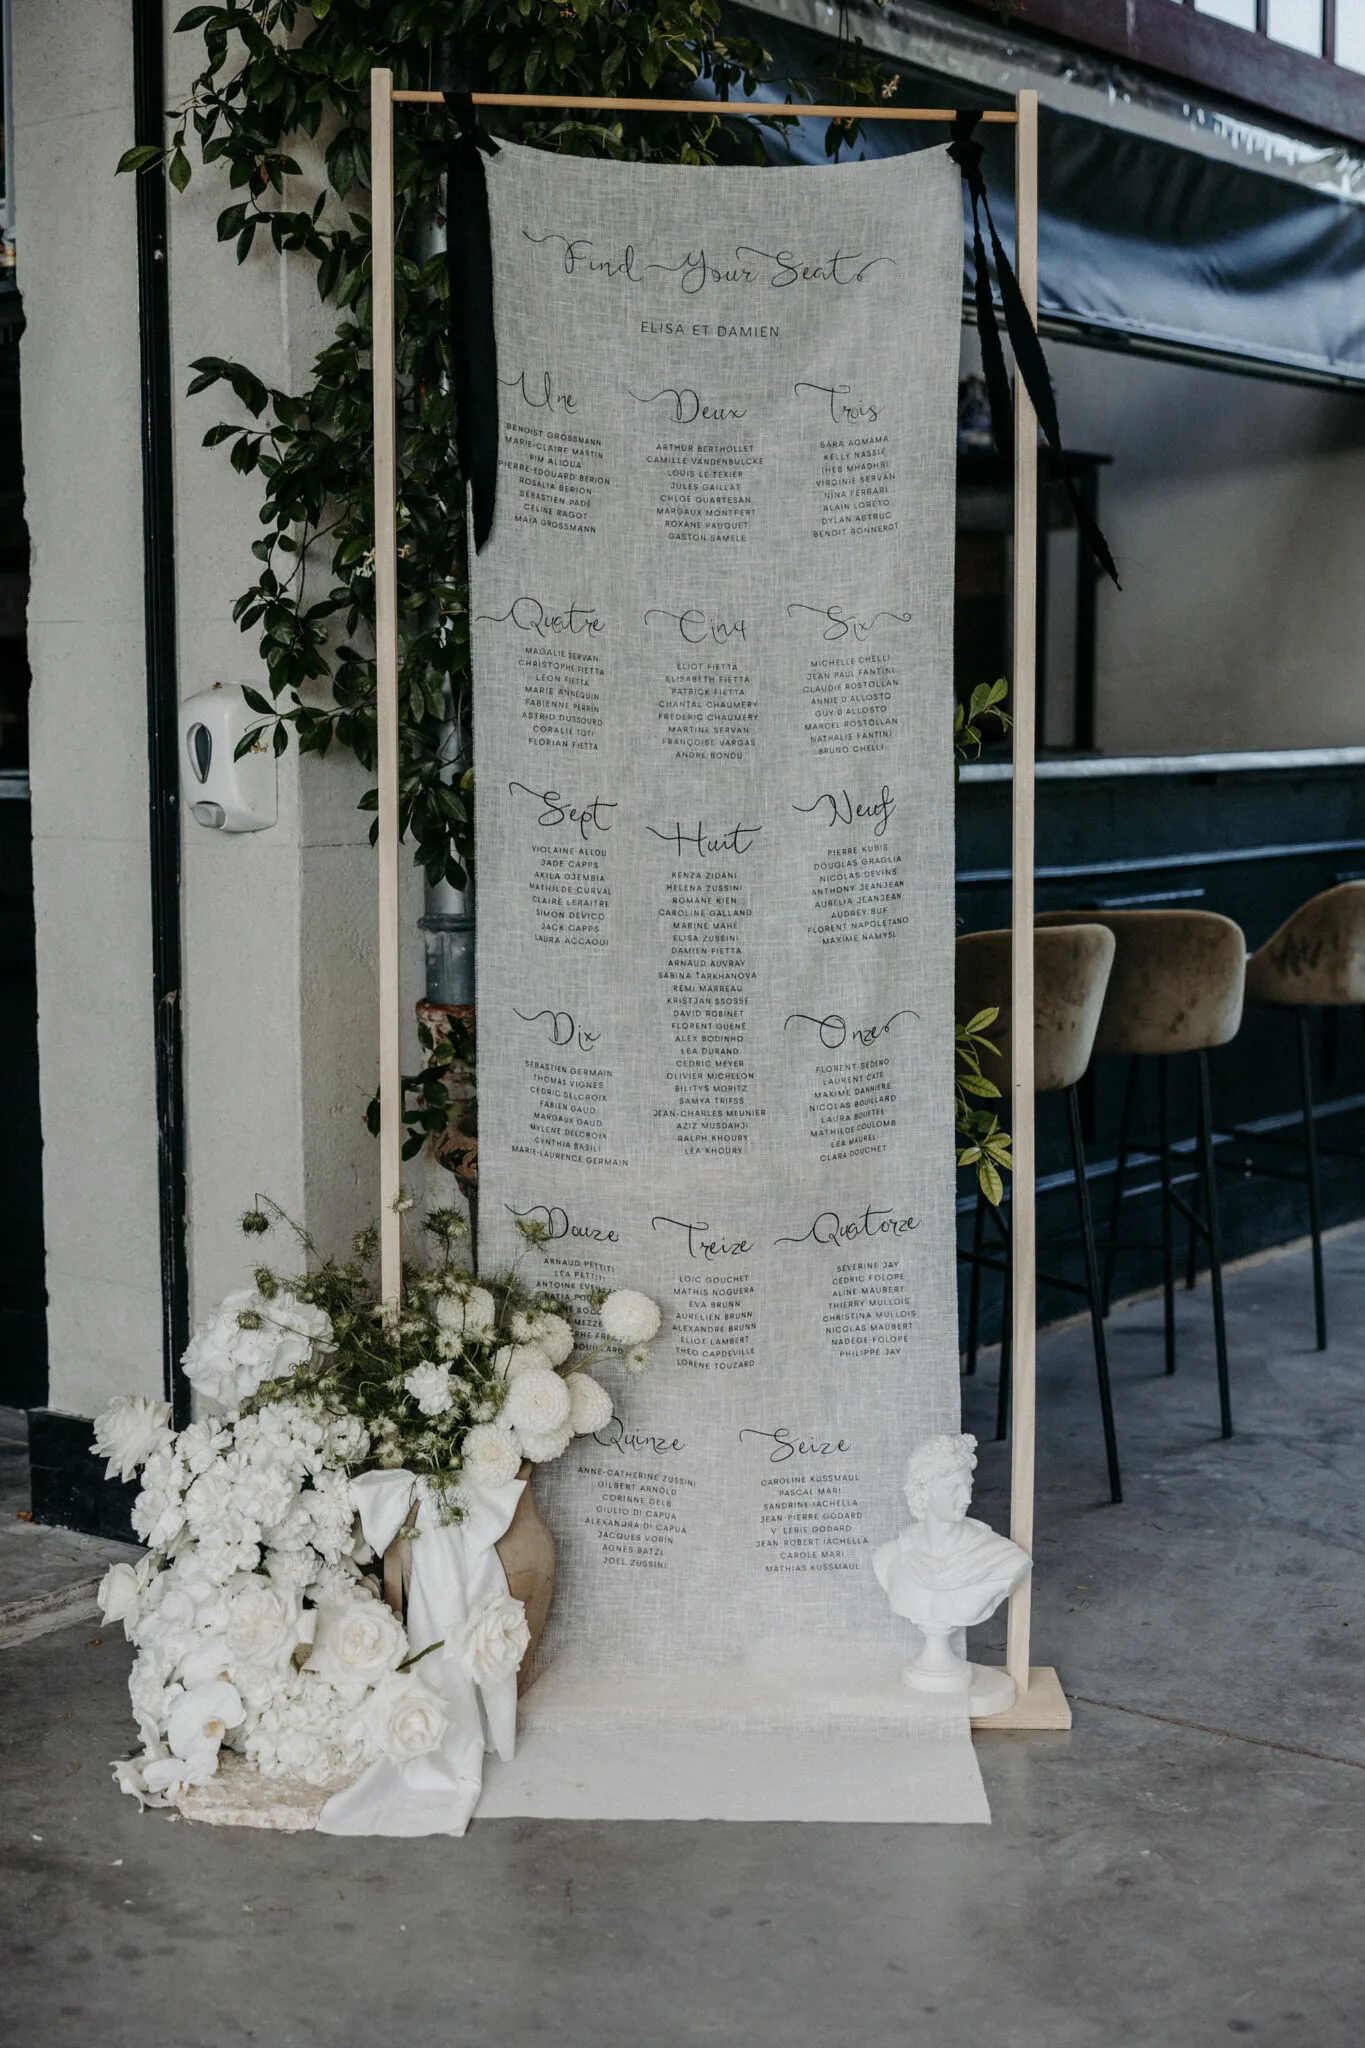 Find Your Seat
ELISA ET DAMIEN
Une
BENOIST GROSSMANN
MARIE-CLAIRE MARTIN
RIM ALIOUA
PIERRE-EDOUARD BERION
ROSALIA BERION
SEBASTIEN PADÉ
CELINE RAGOT
MAIA GROSSMANN
Deux
ARTHUR BERTHOLLET
CAMILLE VANDENBULCKE
LOUIS LE TEXIER
JULES GAILLAT
CHLOÉ QUARTESAN
MARGAUX MONTPERT
ROXANE PAUQUET
GASTON SAMELE
Trois
SARA AQMAMA
KELLY NASSIF
IHEB MHADHBI
VIRGINIE SERVAN
NINA FERRARI
ALAIN LORETO
DYLAN ASTRUC
BENOIT BONNEROT
Quatre
MAGALIE SERVAN
CHRISTOPHE FIETTA
LEON FIETTA
MARIE ANNEQUIN
FABIENNE PERRIN
ASTRID DUSSOURD
CORALIE TOTI
FLORIAN FIETTA
Cinq
ELIOT FIETTA
ELISABETH FIETTA
PATRICK FIETTA
CHANTAL CHAUMERY
FREDERIC CHAUMERY
MARTINE SERVAN
FRANÇOISE VARGAS
ANDRE BONDU
Six
MICHELLE CHELLI
JEAN PAUL FANTINI
CLAUDIE ROSTOLLAN
ANNIE D'ALLOSTO
GUY D'ALLOSTO
MARCEL ROSTOLLAN
NATHALIE FANTINI
BRUNO CHELLI
Sept
VIOLAINE ALLOU
JADE CAPPS
AKILA DJEMBIA
MATHILDE CURVAL
CLAIRE LERAITRE
SIMON DEVICO
JACK CAPPS
LAURA ACCAOUI
Huit
KENZA ZIDANI
HELENA ZUSSINI
ROMANE KIEN
CAROLINE GALLAND
MARINE MAHE
ELISA ZUSSINI
DAMIEN FIETTA
ARNAUD AUVRAY
SABINA TARKHANOVA
REMI MARREAU
KRISTJAN SSOSSÉ
DAVID ROBINET
FLORENT GUENE
ALEX BODINHO
LEA DURAND
CEDRIC MEYER
OLIVIER MICHELON
BILITYS MORITZ
SAMYA TRIFSS
JEAN-CHARLES MEUNIER
AZIZ MUSDAHJI
RALPH KHOURY
LÉA KHOURY
Neuf
PIERRE KUBIS
DOUGLAS GRAGLIA
NICOLAS DEVINS
ANTHONY JEANJEAN
AURELIA JEANJEAN
AUDREY BUF
FLORENT NAPOLETANO
MAXIME NAMYSL
Dix
SEBASTIEN GERMAIN
THOMAS VIGNES
CEDRIC DELCROIX
FABIEN GAUD
MARGAUX GAUD
MYLENE DELCROIX
CYNTHIA BASILI
MARIE-LAURENCE GERMAIN
Onze
FLORENT SEDENO
LAURENT CATE
MAXIME DANNIERE
NICOLAS BOUILLARD
LAURA BOUETEL
MATHILDE COULOMB
LÉA MAUREL
CLARA DOUCHET
Douze
ARNAUD PETTITI
LÉA PETTITI
ANTOINE
BOUILLARD
Treize
LOIC GOUCHET
MATHIS NOGUERA
EVA BRUNN
AURELIEN BRUNN
ALEXANDRE BRUNN
ELIOT LAMBERT
THEO CAPDEVILLE
LORENE TOUZARD
Quatorze
SÉVERINE JAY
CEDRIC FOLOPE
ALINE MAUBERT
THIERRY MULLOIS
CHRISTINA MULLOIS
NICOLAS MAUBERT
NADÈGE FOLOPE
PHILIPPE JAY
Quinze
ANNE-CATHERINE ZUSSINI
GILBERT ARNOLD
CORINNE GELB
GIULIO DI CAPUA
ALEXANDRA DI CAPUA
JACQUES VORIN
AGNES BATZL
JOEL ZUSSINI
Seize
CAROLINE KUSSMAUL
PASCAL MARI
SANDRINE IACHELLA
JEAN-PIERRE GODARD
V LERIE GODARD
JEAN ROBERT IACHELLA
CAROLE MARI
MATHIAS KUSSMAUL